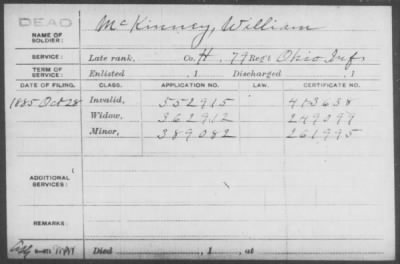 DEAD
NAME OF SOLDIER: McKinney, William
SERVICE: Late rank, Co. H, 79 Reg't Ohio Inf.
TERM OF SERVICE: Enlisted , 1 Discharged , 1
DATE OF FILING. CLASS. APPLICATION NO. LAW. CERTIFICATE NO.
1885 Oct 28 Invalid, 552915 413638
Widow, 362912 249099
Minor, 389082 261995
ADDITIONAL SERVICES:
REMARKS:
Died , 1 , at